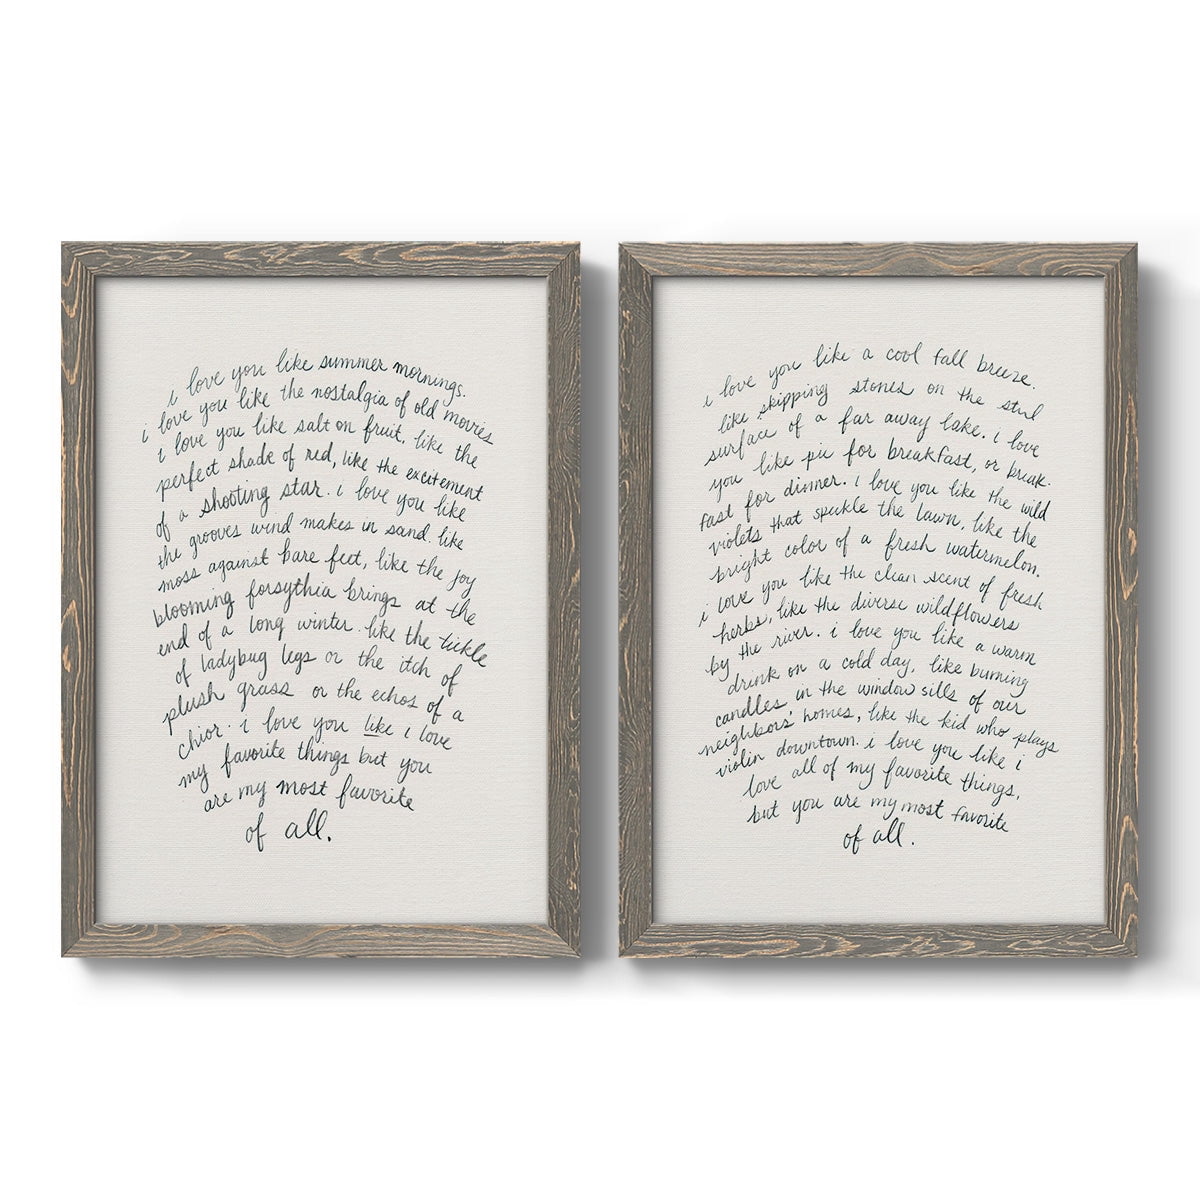 i love you like summer mornings.
i love you like the nostalgia of old movies
i love you like salt on fruit, like the
perfect shade of red, like the excitement
of a shooting star. i love you like
the grooves wind makes in sand. like
moss against bare feet, like the joy
blooming forsythia brings at the
end of a long winter. like the tickle
of ladybug legs or the itch of
plush grass or the echos of a
chior. i love you like i love
my favorite things but you
are my most favorite
of all.
i love you like a cool fall breeze.
like skipping stones on the still
surface of a far away lake. i love
you like pie for breakfast, or break-
fast for dinner. i love you like the wild
violets that speckle the lawn, like the
bright color of a fresh watermelon.
i love you like the clean scent of fresh
herbs, like the diverse wildflowers
by the river. i love you like a warm
drink on a cold day, like burning
candles in the window sills of our
neighbors' homes, like the kid who plays
violin downtown. i love you like i
love all of my favorite things,
but you are my most favorite
of all.